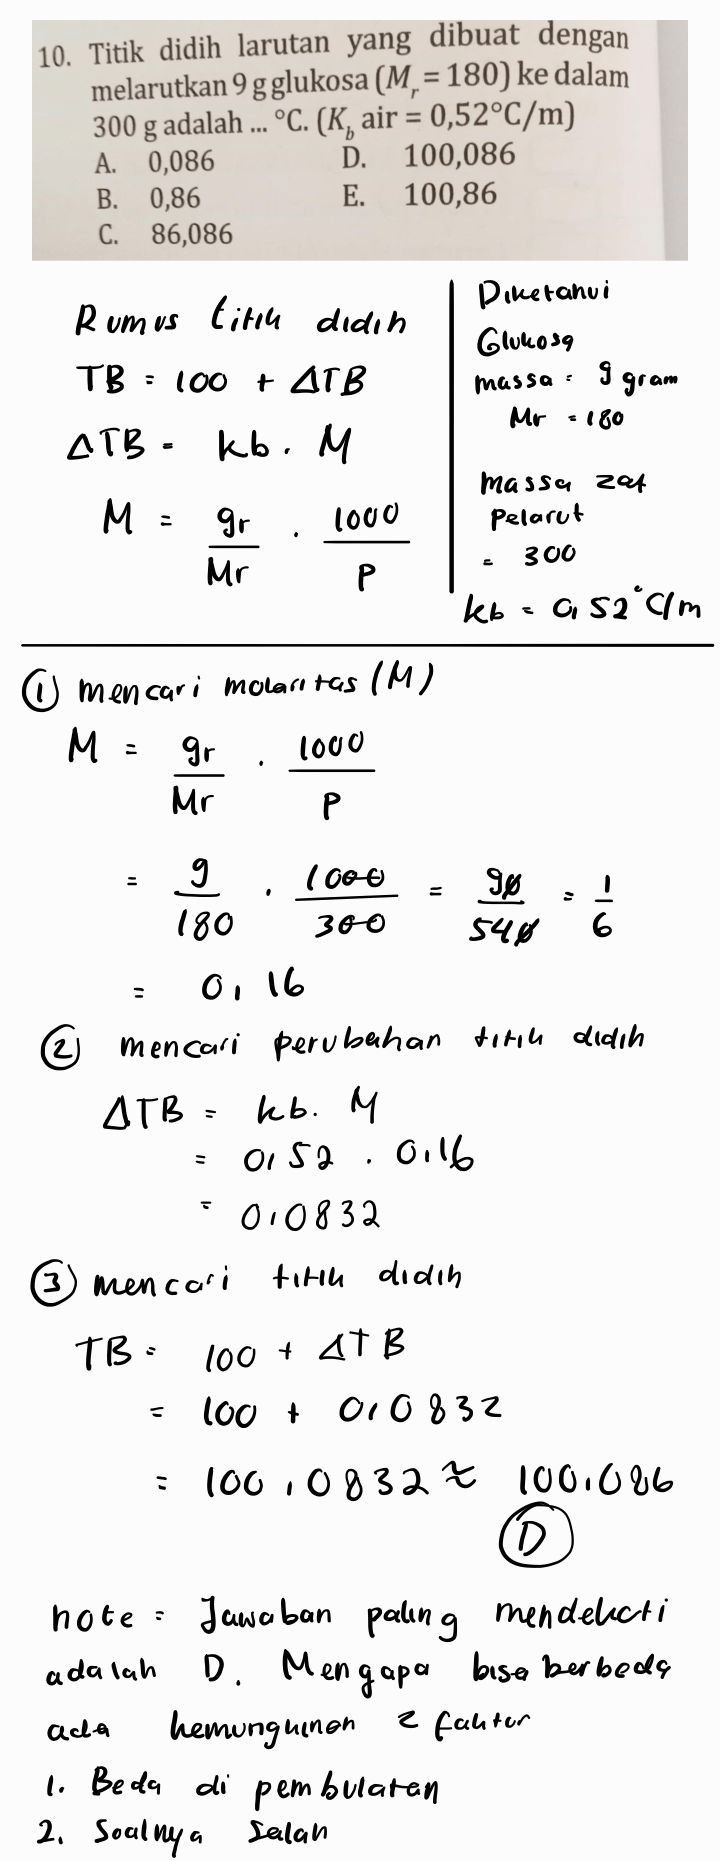 10. Titik didih larutan yang dibuat dengan
melarutkan 9 g glukosa (Mr = 180) ke dalam
300 g adalah ... °C. (Kb air = 0,52°C/m)
A. 0,086 D. 100,086
B. 0,86 E. 100,86
C. 86,086
Rumus titik didih
TB = 100 + ΔTB
ΔTB = kb . M
M = gr/Mr . 1000/P
Diketahui
Glukosa
massa = 9 gram
Mr = 180
massa zat
Pelarut
= 300
kb = 0,52°C/m
① mencari molaritas (M)
M = gr/Mr . 1000/P
= 9/180 . 1000/300 = 90/540 = 1/6
= 0,16
② mencari perubahan titik didih
ΔTB = kb. M
= 0,52 . 0,16
= 0,0832
③ mencari titik didih
TB = 100 + ΔTB
= 100 + 0,0832
= 100,0832 ≈ 100,086
D
note = Jawaban paling mendekati
adalah D. Mengapa bisa berbeda
ada kemungkinan 2 faktor
1. Beda di pembulatan
2. Soalnya Salah